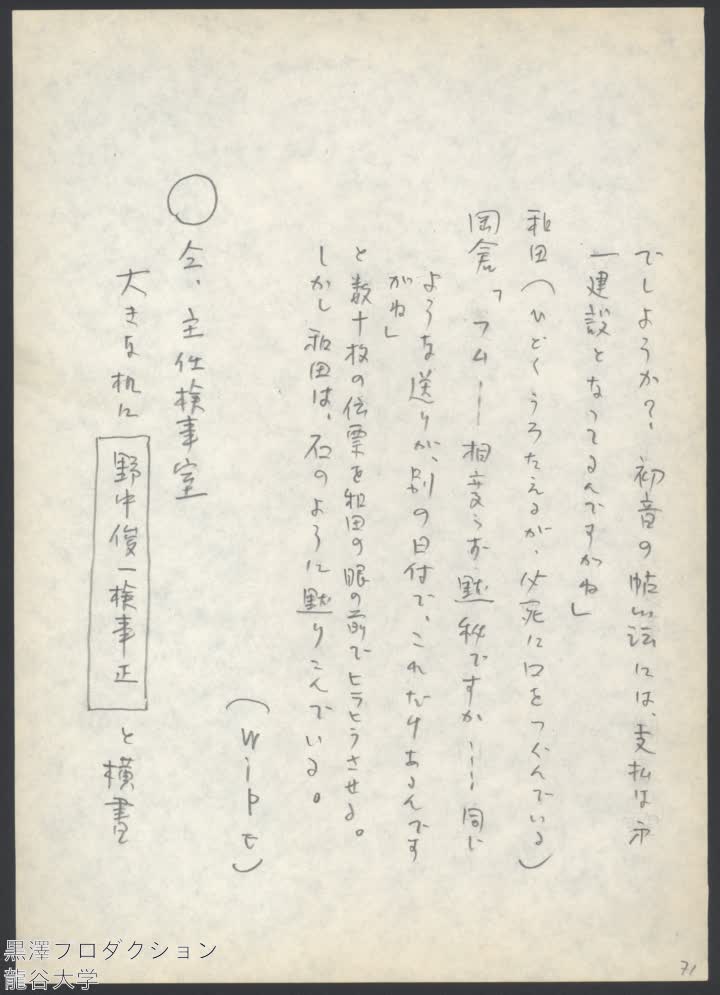 でしようか?、初音の帖面には、支払は㐧
一建設となつてるんですがね」
和田(ひどくうろたえるが、必死に口をつぐんでいる)
岡倉「フムーー相変らず黙秘ですか……同じ
ような送りが、別の日付で、これだけあるんです
がね」
と数十枚の伝票を和田の眼の前でヒラヒラさせる。
しかし和田は、石のように黙りこんでいる。
(Wipe)
○ 仝、主任検事室
大きな机に 野中俊一検事正 と横書
71
黒澤プロダクション
龍谷大学